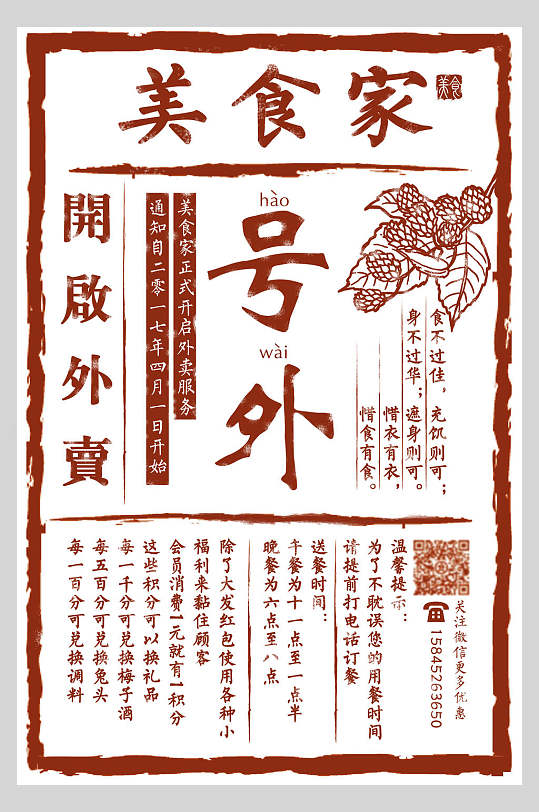 美食家
美食
開啟外賣
美食家正式开启外卖服务
通知自二零一七年四月一日开始
hào
号
wài
外
食不过佳，充饥则可；
身不过华；遮身则可。
惜衣有衣，
惜食有食。
关注微信更多优惠
15845263650
温馨提示：
为了不耽误您的用餐时间
请提前打电话订餐
送餐时间：
午餐为十一点至一点半
晚餐为六点至八点
除了大发红包使用各种小
福利来黏住顾客
会员消费1元就有1积分
这些积分可以换礼品
每一千分可兑换梅子酒
每五百分可兑换兔头
每一百分可兑换调料